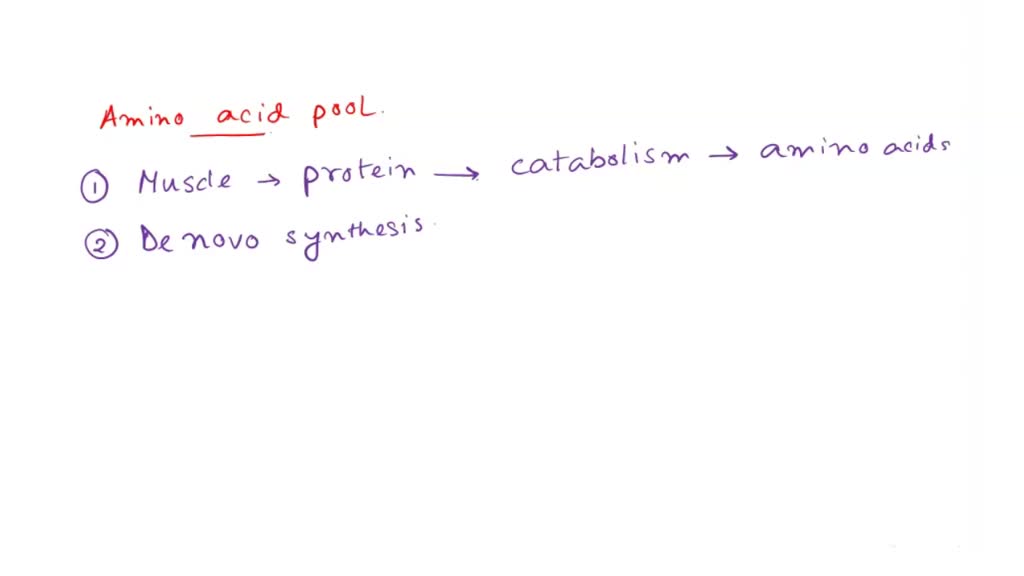 Amino acid pool.
① Muscle → protein → catabolism → amino acids
② De novo synthesis.